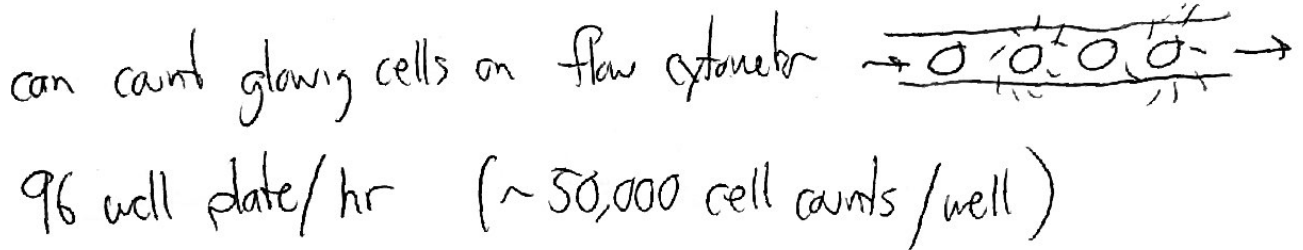 can count glowing cells on flow cytometer
96 well plate/hr (~50,000 cell counts/well)